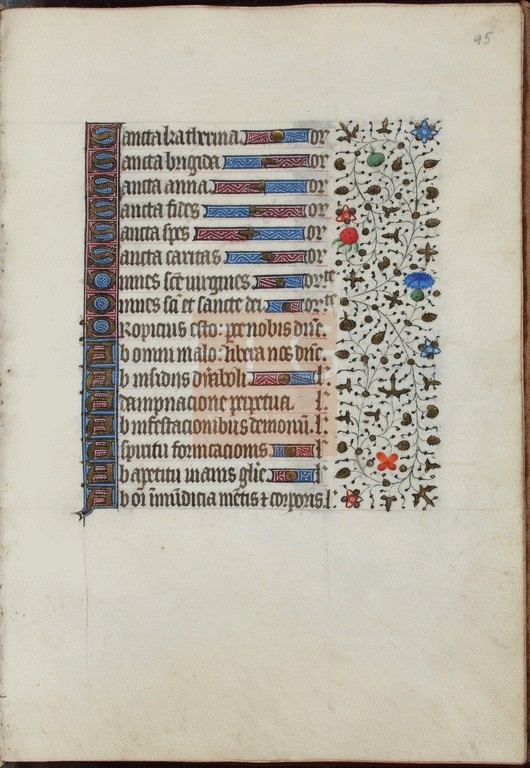 95
Sancta katherina or
Sancta brigida or
Sancta anna or
Sancta fides or
Sancta spes or
Sancta caritas or
Omnes scē uirgines or.te
Omnes sā et sancte dei or.te
Ropicius esto: pce nobis dn̄e.
Ab omni malo: libera nos dn̄e.
Ab insidiis dyaboli. l.
A dampnacione perpetua. l.
Ab infestacionibus demonū. l.
A spiritu fornicacionis l.
Ab apetitu inanis glīe l.
Ab oī īmūdicia mētis ⁊ corporis. l.